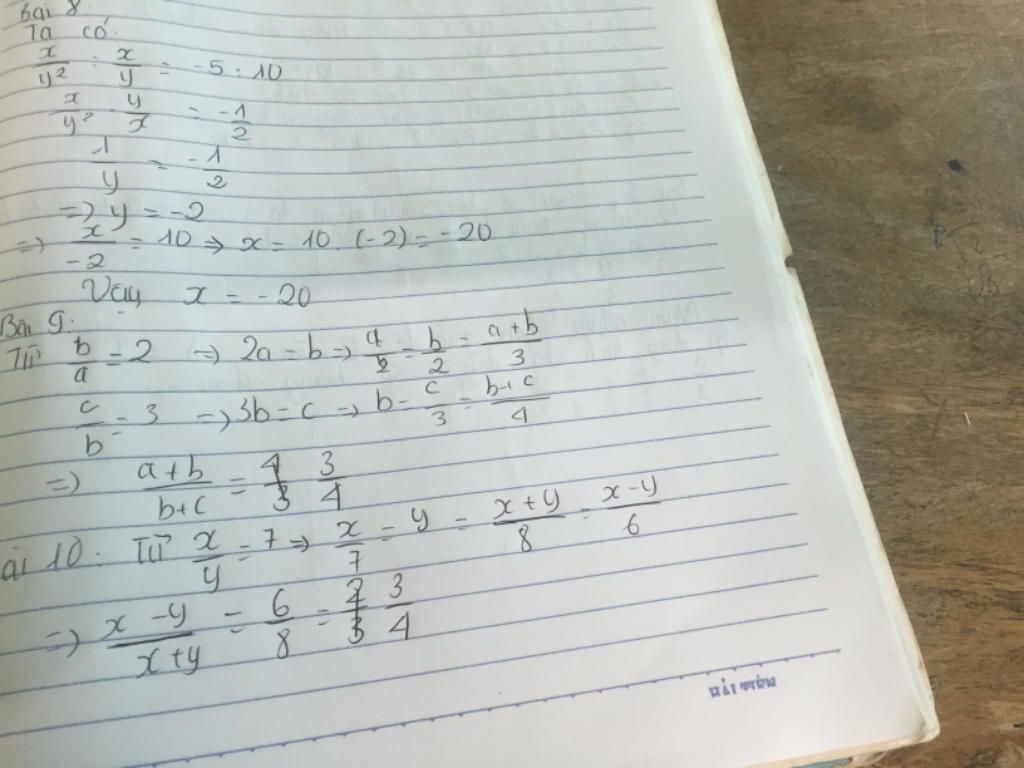 Bài 8.
Ta có.
x/y² : x/y = -5 : 10
x/y² . y/x = -1/2
1/y = -1/2
=> y = -2
=> x/-2 = 10 => x = 10 (-2) = -20
Vậy x = -20
Bài 9.
Từ b/a = 2 => 2a = b => a/2 = b/2 = a+b/3
c/b = 3 => 3b = c => b = c/3 = b+c/4
=> a+b/b+c = 3/4
ài 10: Từ x/y = 7 => x/7 = y = x+y/8 = x-y/6
=> x-y/x+y = 6/8 = 3/4